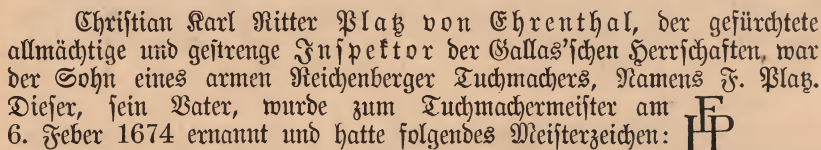 Christian Karl Ritter Platz von Ehrenthal, der gefürchtete
allmächtige und gestrenge Inspektor der Gallas'schen Herrschaften, war
der Sohn eines armen Reichenberger Tuchmachers, Namens F. Platz.
Dieser, sein Vater, wurde zum Tuchmachermeister am
6. Feber 1674 ernannt und hatte folgendes Meisterzeichen: